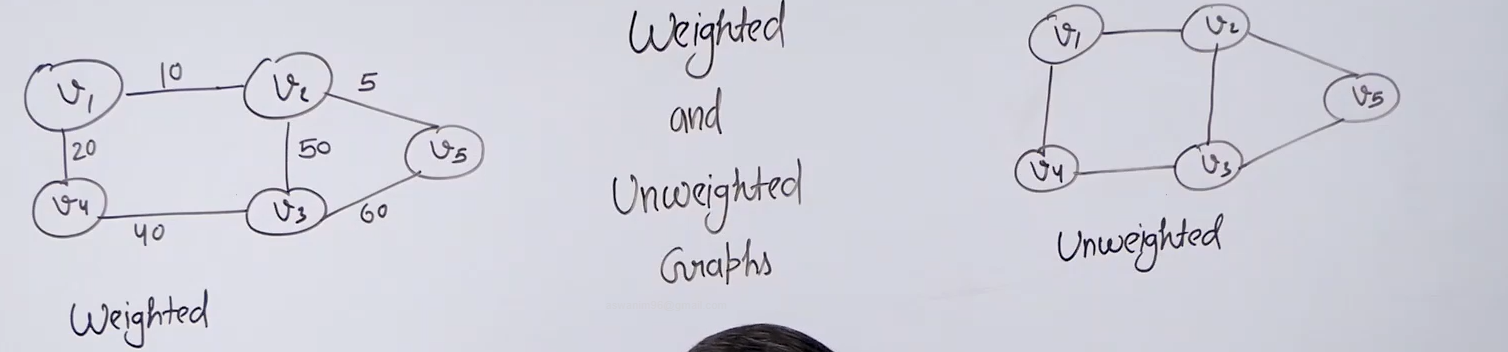 v1 10 v2 5
20 50 v5
v4 40 v3 60
Weighted
Weighted
and
Unweighted
Graphs
v1 v2
v5
v4 v3
Unweighted